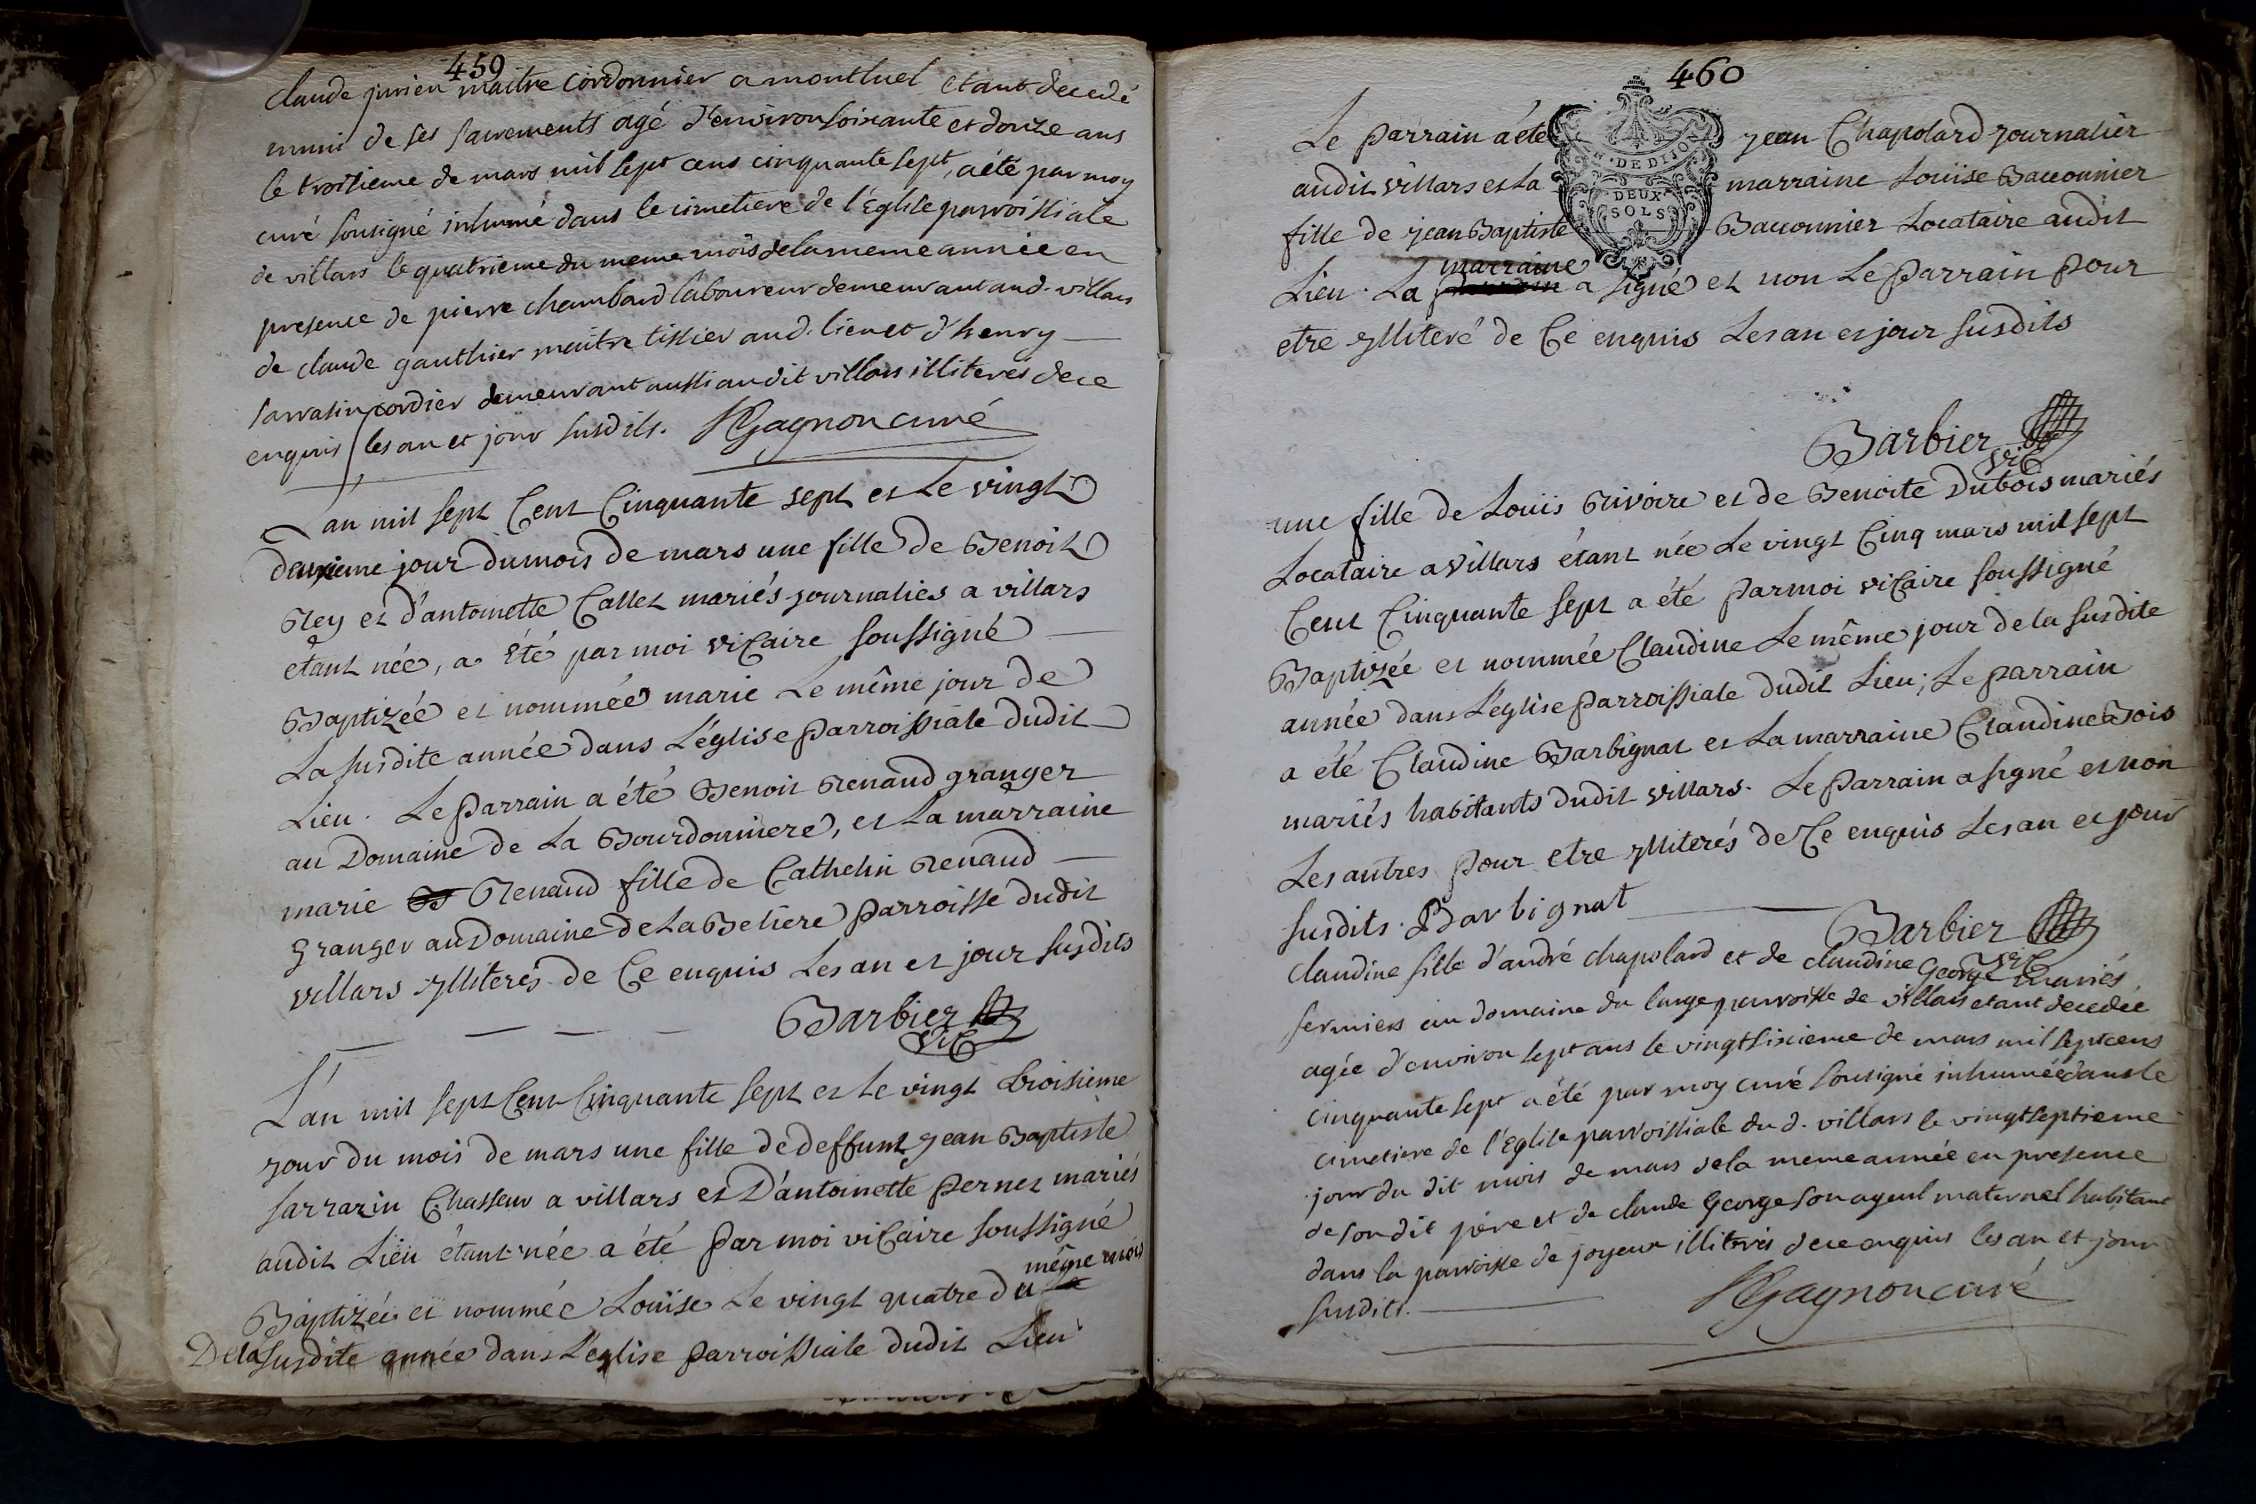 459
Claude jurieu maitre cordonnier a montluel etant decedé
muni de ses sacrements agé d'environ soixante et douze ans
le troisieme de mars mil sept cens cinquante sept, a été par moy
curé sousigné inhumé dans le cimetiere de l'Eglise parroissiale
de villars le quatrieme du meme mois de la meme année en
presence de pierre chambard laboureur demeurant aud. villars
de claude gauthier maitre tissier aud. lieu et d'henry
sarrasin cordier demeurant aussi audit villars illiterés de ce
enquis les an et jour susdits. Gagnon curé
L'an mil sept Cent Cinquante sept et Le vingt
deuxieme jour du mois de mars une fille de Benoit
Rey et d'antoinette Callet mariés journaliés a villars
etant née, a été par moi viCaire soussigné
Baptizée et nommée marie Le même jour de
La susdite année dans L'église Parroissiale dudit
Lieu. Le Parrain a été Benoit Renaud granger
au Domaine de La Bourdonniere, et La marraine
marie Renaud fille de Cathelin Renaud
granger au Domaine de La Betiere Parroisse dudit
villars ylliterés de Ce enquis Les an et jour susdits
Barbier
viC
L'an mil sept Cent Cinquante sept et Le vingt troisieme
jour du mois de mars une fille de deffunt jean Baptiste
sarrazin Chasseur a villars et D'antoinette Pernet mariés
audit Lieu étant née a été Par moi viCaire soussigné
même mois
Baptizée et nommée Louise Le vingt quatre du
De la susdite année dans L'église Parroissiale dudit Lieu
460
Le Parrain a été jean Chapolard journalier
audit villars et La marraine Louïse Bacconnier
DE DIJON
DEUX
SOLS
fille de jean Baptiste Bacconnier Locataire audit
marraine
Lieu. La a signé et non Le Parrain Pour
etre ylliteré de Ce enquis Les an et jour susdits
Barbier
viC
une fille de Louis Rivoire et de Benoite Dubois mariés
Locataire a villars étant née Le vingt Cinq mars mil sept
Cent Cinquante sept a été Par moi viCaire soussigné
Baptizée et nommée Claudine Le même jour de la susdite
année dans L'église Parroissiale dudit Lieu; Le parrain
a été Claudine Barbignat et La marraine Claudine Bois
mariés habitants dudit villars. Le Parrain a signé et non
Les autres Pour etre ylliterés de Ce enquis Les an et jour
susdits. Barbignat
Barbier
viC
Claudine fille d'andré chapolard et de claudine George mariés
fermiers au domaine du large parroisse de villars etant decedée
agée d'environ sept ans le vingt sixieme de mars mil sept cens
cinquante sept a été par moy curé sousigné inhumée dans le
cimetiere de l'Eglise parroissiale du d. villars le vingt septieme
jour du dit mois de mars de la meme année en presence
de son dit pére et de claude George son ayeul maternel habitant
dans la parroisse de joyeux illiterés de ce enquis les an et jour
susdits. Gagnon curé